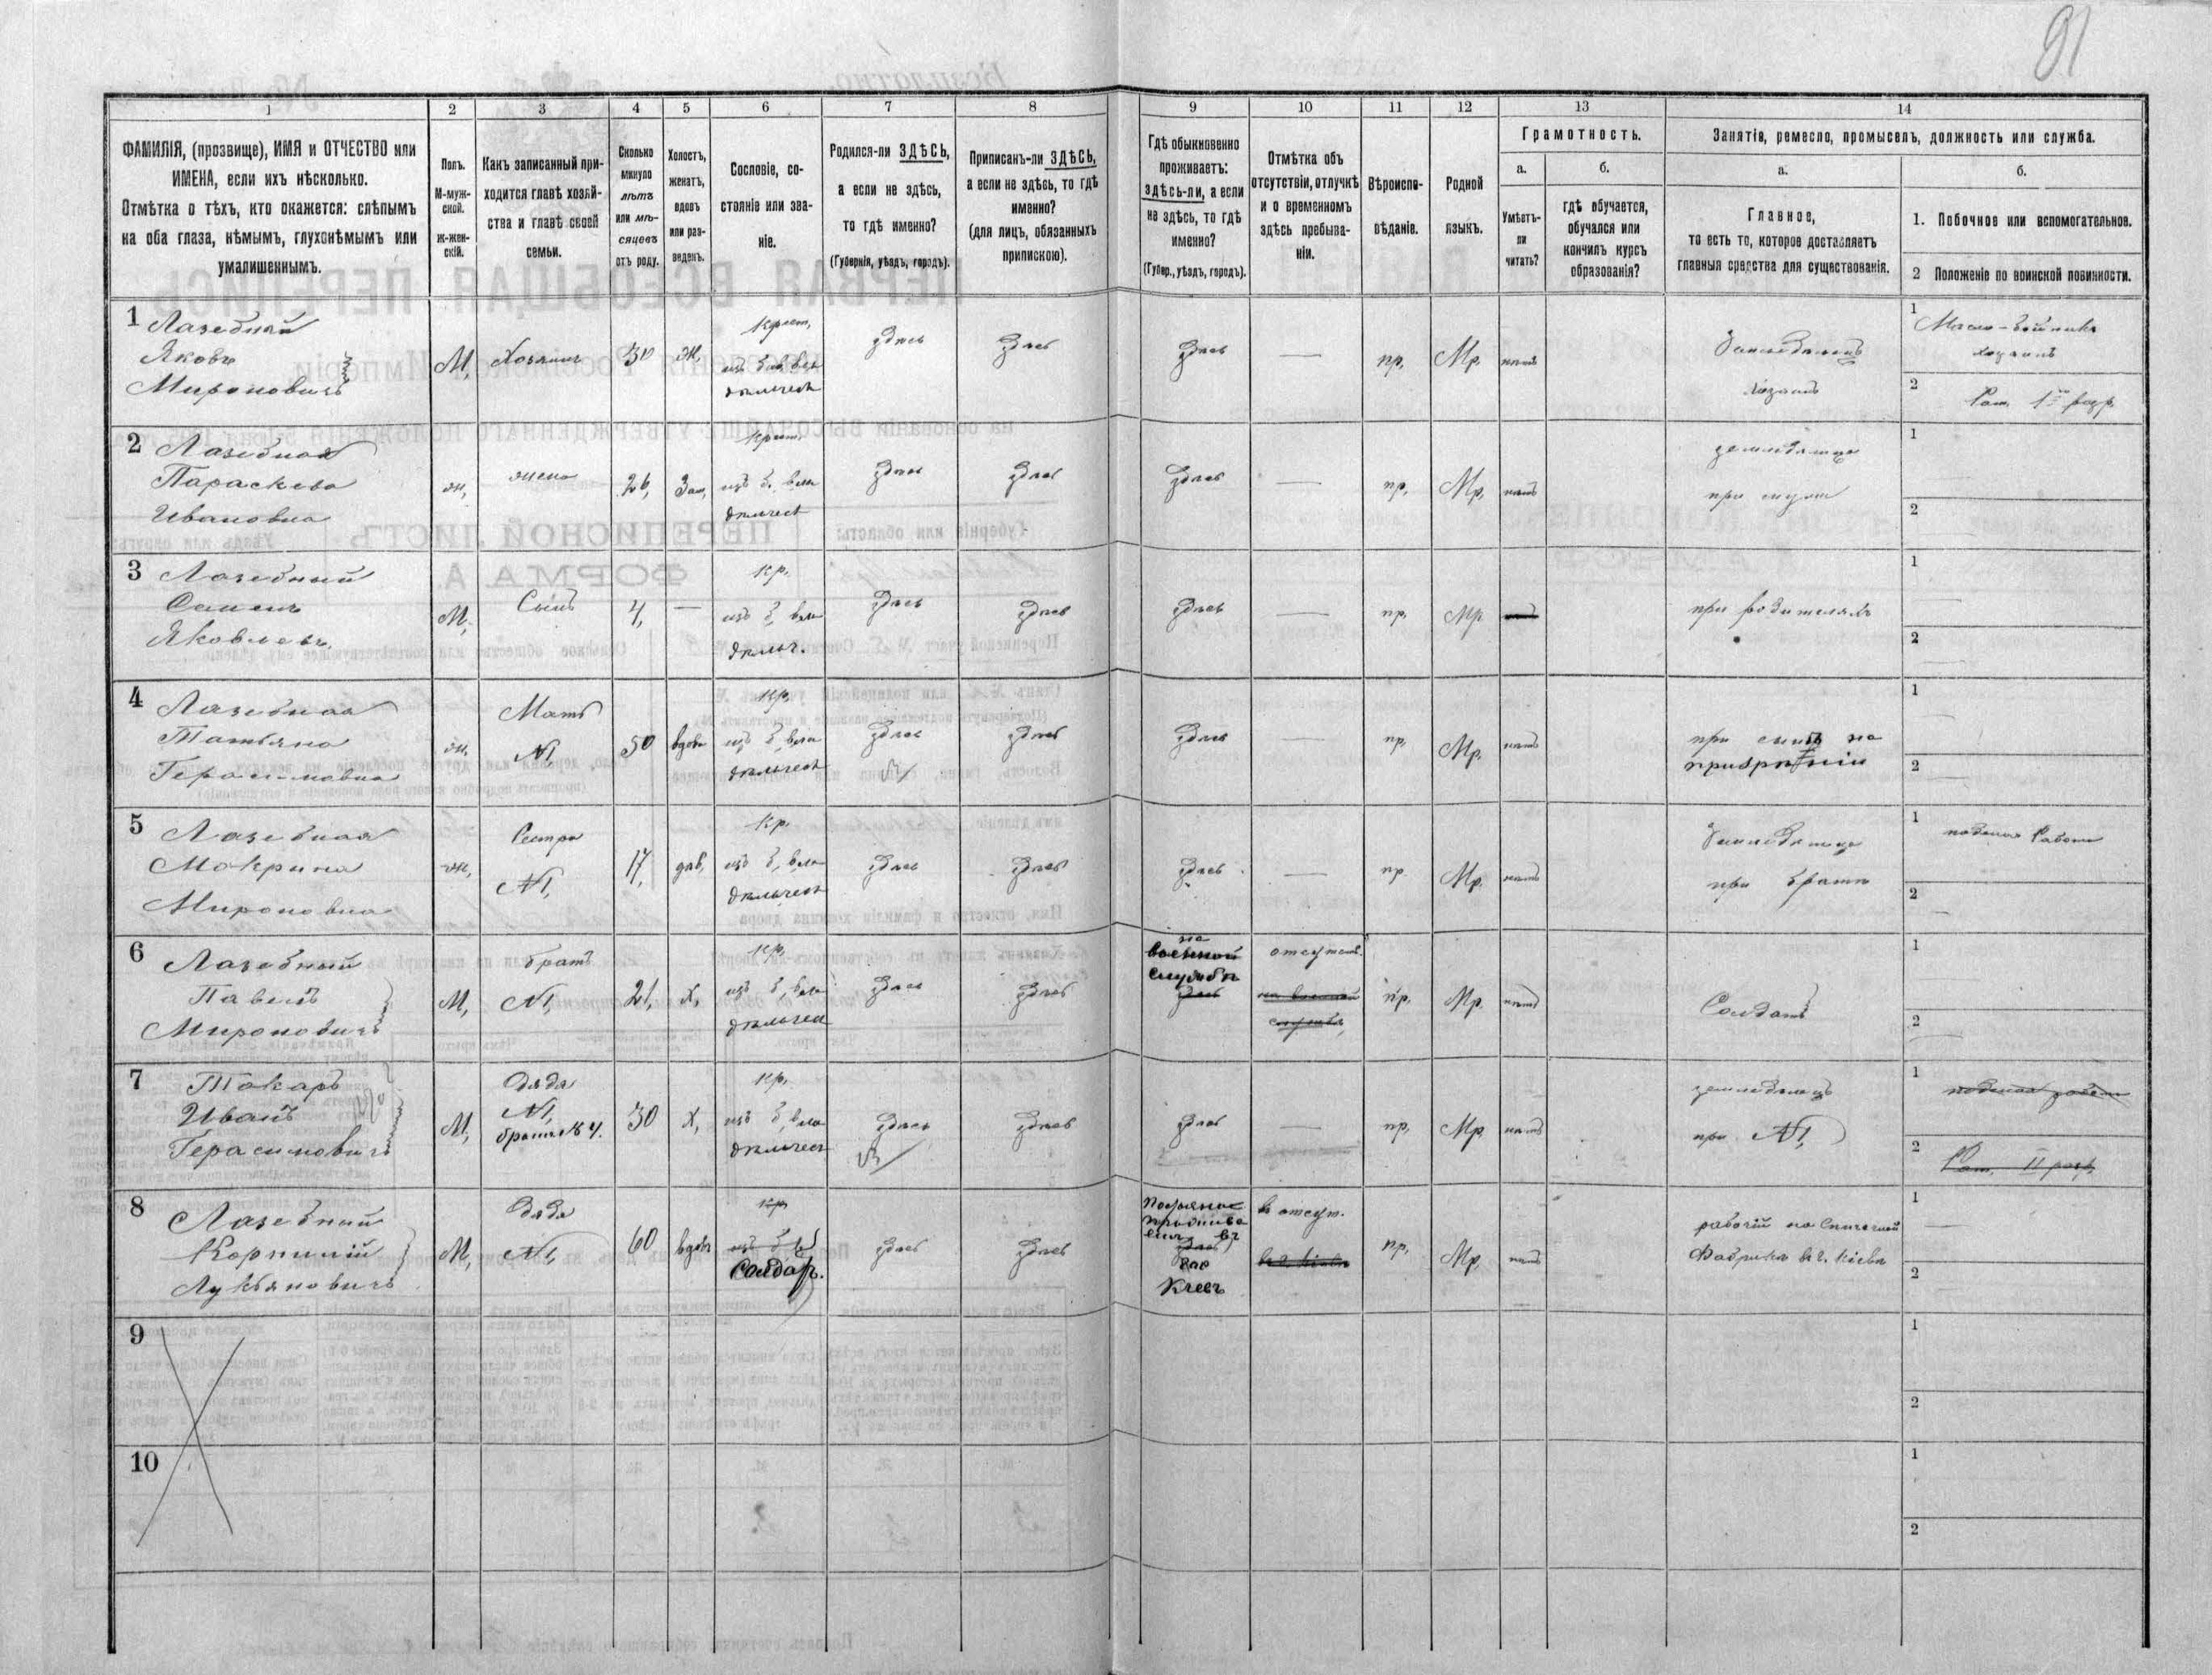 91
1
2
3
4
5
6
7
8
9
10
11
12
13
14
ФАМИЛІЯ, (прозвище), ИМЯ и ОТЧЕСТВО или
ИМЕНА, если ихъ нѣсколько.
Отмѣтка о тѣхъ, кто окажется: слѣпымъ
на оба глаза, нѣмымъ, глухонѣмымъ или
умалишеннымъ.
Полъ.
М-муж-
ской.
ж-жен-
скій.
Какъ записанный при-
ходится главѣ хозяй-
ства и главѣ своей
семьи.
Сколько
минуло
лѣтъ
или мѣ-
сяцевъ
отъ роду.
Холостъ,
женатъ,
вдовъ
или раз-
веденъ.
Сословіе, со-
стояніе или зва-
ніе.
Родился-ли ЗДѢСЬ,
а если не здѣсь,
то гдѣ именно?
(Губернія, уѣздъ, городъ).
Приписанъ-ли ЗДѢСЬ,
а если не здѣсь, то гдѣ
именно?
(для лицъ, обязанныхъ
припискою).
Гдѣ обыкновенно
проживаетъ:
здѣсь-ли, а если
не здѣсь, то гдѣ
именно?
(Губер., уѣздъ, городъ).
Отмѣтка объ
отсутствіи, отлучкѣ
и о временномъ
здѣсь пребыва-
ніи.
Вѣроиспо-
вѣданіе.
Родной
языкъ.
Грамотность.
а.
Умѣетъ-
ли
читать?
б.
гдѣ обучается,
обучался или
кончилъ курсъ
образованія?
Занятіе, ремесло, промыселъ, должность или служба.
а.
Главное,
то есть то, которое доставляетъ
главныя средства для существованія.
б.
1. Побочное или вспомогательное.
2 Положеніе по воинской повинности.
1 Лазебный
Яковъ
Мироновичъ
М, Хозяинъ 30 Ж,
Крест,
здѣсь здѣсь здѣсь — пр, Мр. нѣтъ
Земледѣлецъ
хозяинъ
1 Масло-бойникъ
хозяинъ
2 Рат. 1 разр.
2 Лазебная
Параскева
Ивановна
ж, жена 26, Зам,
Крест.
здѣсь здѣсь здѣсь — пр, Мр, нѣтъ
земледѣлица
при мужѣ
1
2
3 Лазебный
Семенъ
Яковлевъ.
М, Сынъ 4, —
Кр.
здѣсь здѣсь здѣсь — пр, Мр
при родителяхъ
1
2
4 Лазебная
Татьяна
Герасимовна
ж, Мать
№1
50 вдова
Кр.
здѣсь здѣсь здѣсь — пр, Мр, нѣтъ
при сынѣ на
призрѣніи
1
2
5 Лазебная
Мокрина
Мироновна
ж, Сестра
№1,
17, дѣв,
Кр.
здѣсь здѣсь здѣсь — пр Мр. нѣтъ
Земледѣлица
при братѣ
1
2
6 Лазебный
Павелъ
Мироновичъ
М, братъ
№1,
21, Х,
Кр,
здѣсь здѣсь
на
военной
службѣ
здѣсь
отсутств.
на военной
службѣ,
пр. Мр. нѣтъ
Солдатъ
1
2
7 Токарь
Иванъ
Герасимовичъ
М, Дядя
№1,
братъ №4.
30 Х,
Кр,
здѣсь здѣсь здѣсь — пр, Мр, нѣтъ
земледѣлецъ
при №1,
1
2 Рат. II разр.
8 Лазебный
Корнилій
Лукьяновичъ
М, Дядя
№1,
60 вдовъ
Кр
Солдат.
здѣсь здѣсь
здѣсь
Кіевъ
въ отсут.
пр, Мр, нѣтъ
рабочій на Спичечной
Фабрикѣ въ г. Кіевѣ
1
2
9
1
2
10
1
2